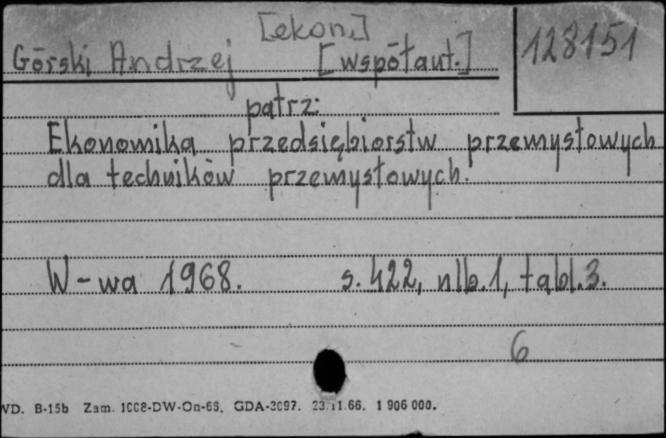 [ekon.]
Górski Andrzej [współaut.]
128151
patrz:
Ekonomika przedsiębiorstw przemysłowych
dla techników przemysłowych.
W-wa 1968. s. 422, nlb. 1, tabl. 3.
6
WD. B-15b Zam. 1008-DW-On-66, GDA-3097. 23.11.66. 1 906 000.